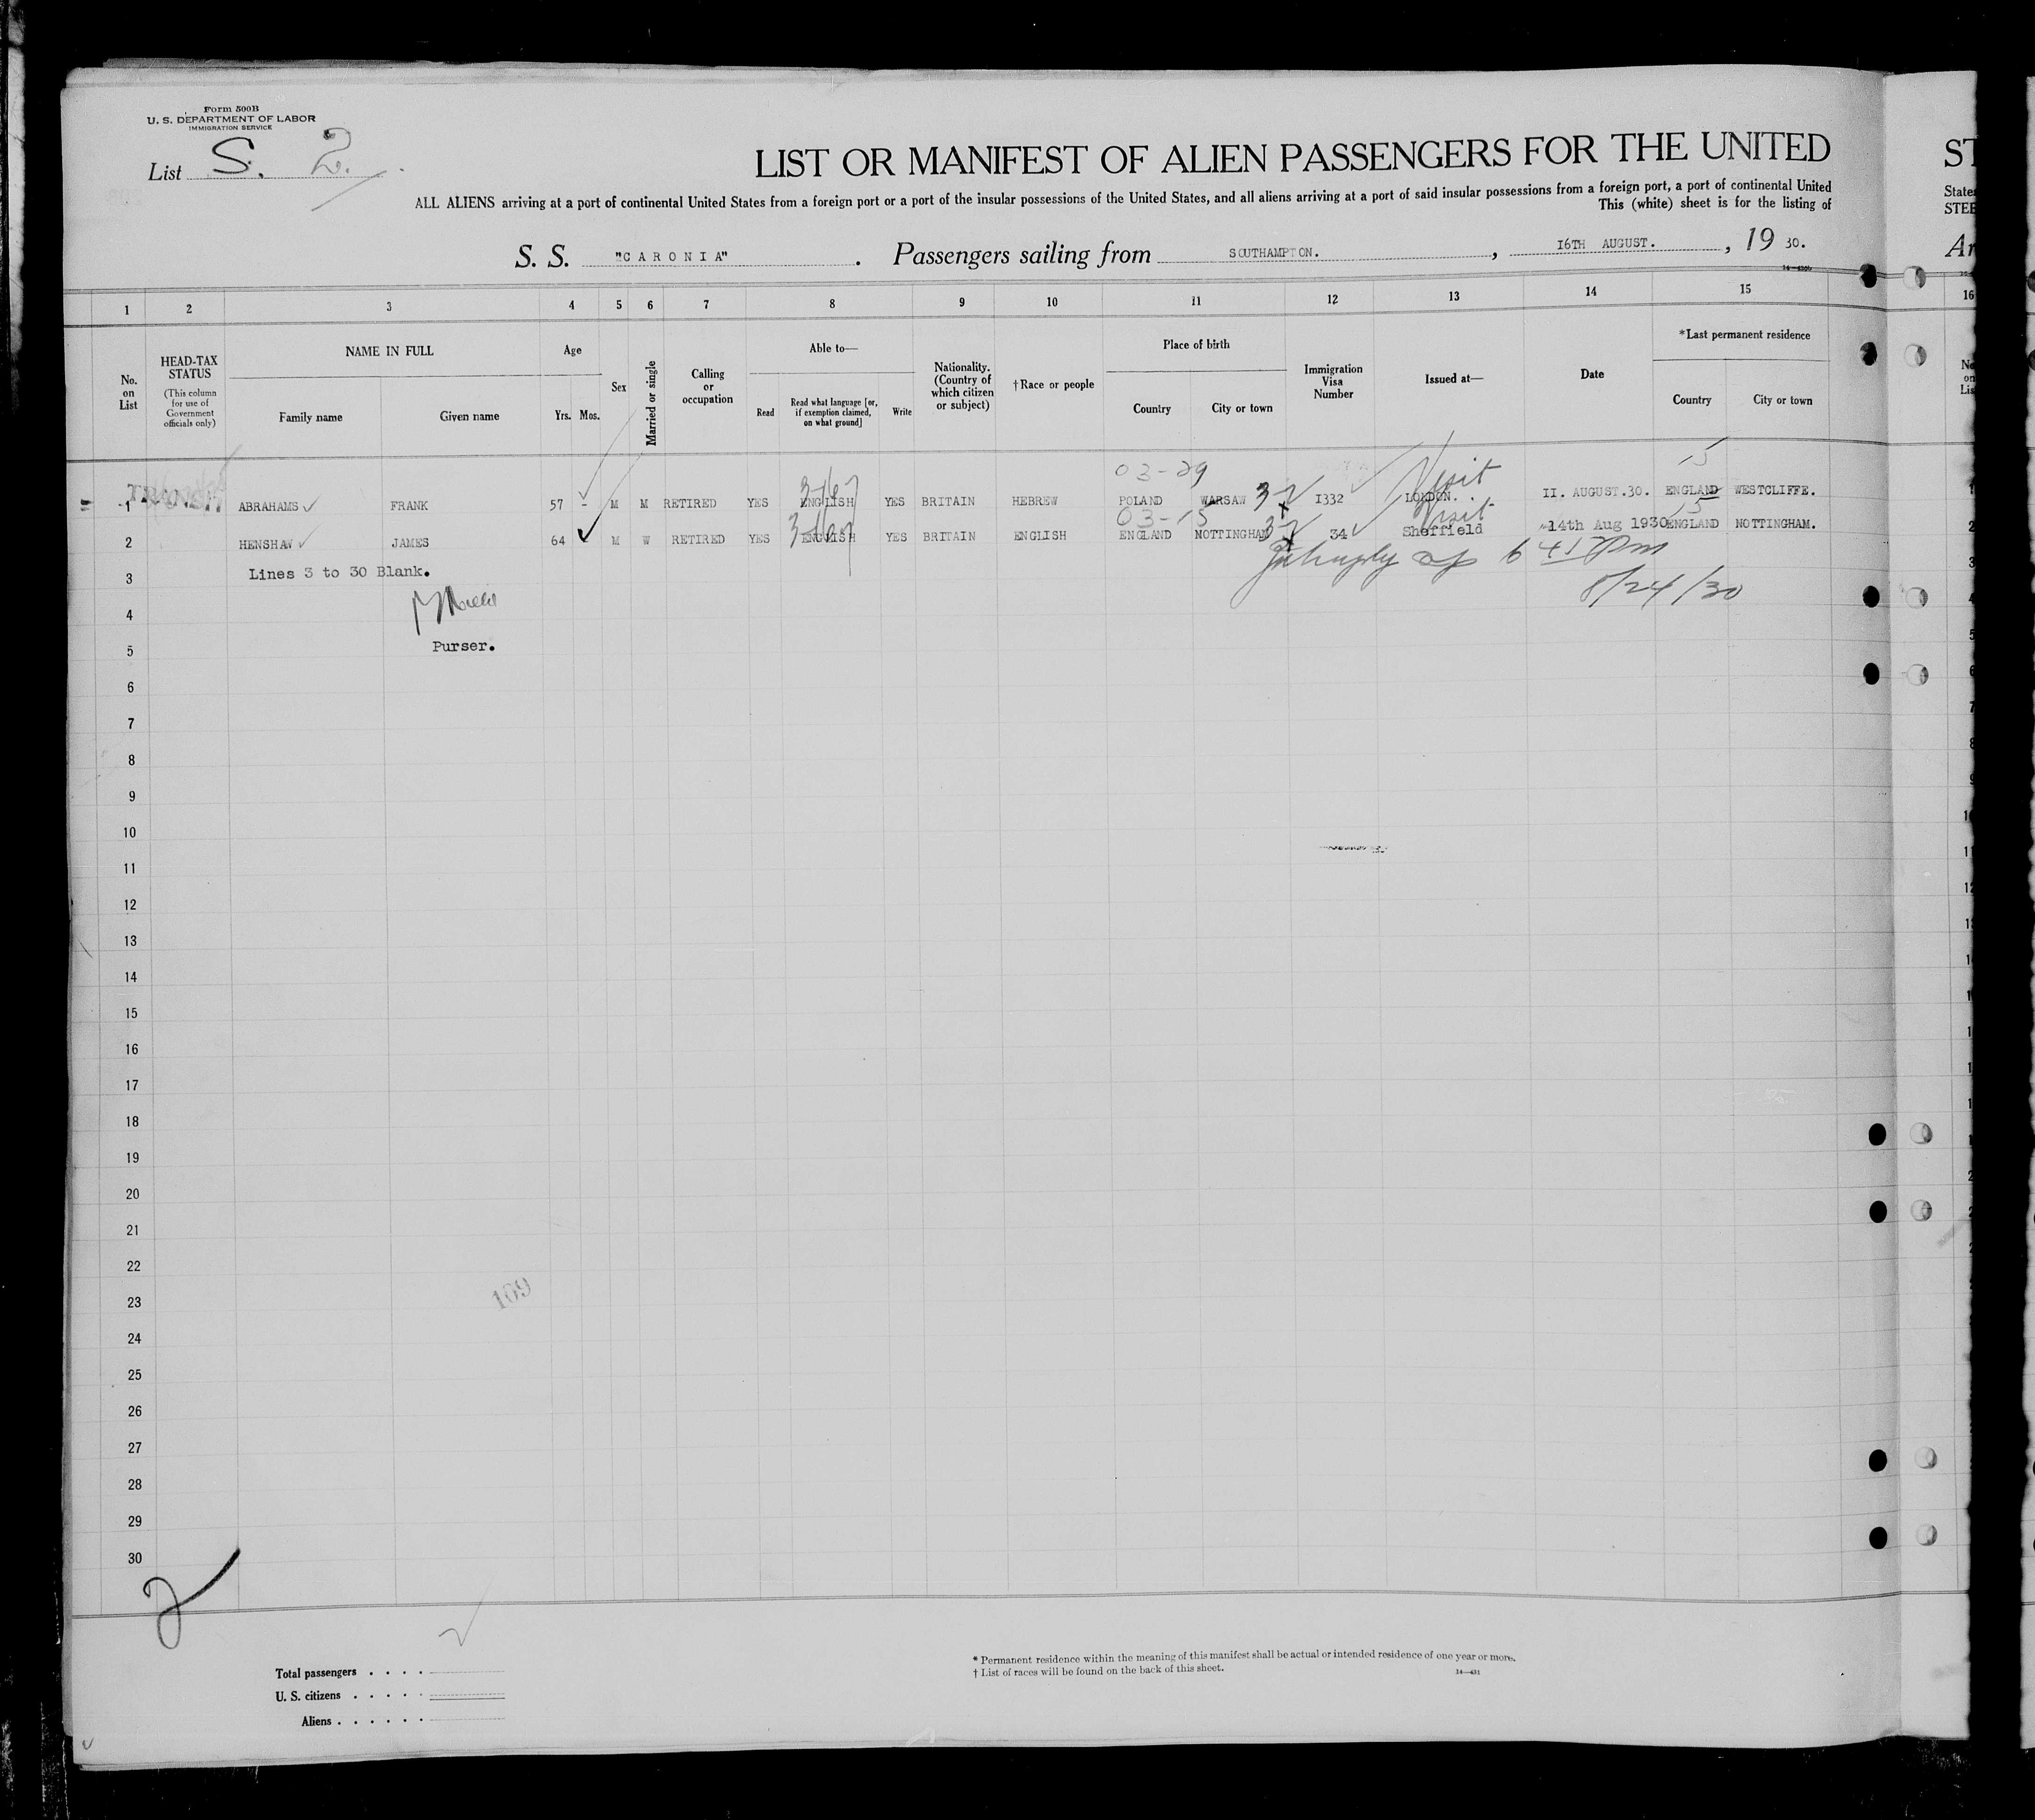 Form 500B
U. S. DEPARTMENT OF LABOR
IMMIGRATION SERVICE
List S. 2.
LIST OR MANIFEST OF ALIEN PASSENGERS FOR THE UNITED
ALL ALIENS arriving at a port of continental United States from a foreign port or a port of the insular possessions of the United States, and all aliens arriving at a port of said insular possessions from a foreign port, a port of continental United
This (white) sheet is for the listing of
S. S. "CARONIA". Passengers sailing from SOUTHAMPTON., 16TH AUGUST., 19 30.
ST
State
STEE
Ar
1 2 3 4 5 6 7 8 9 10 11 12 13 14 15 16
No. on List
HEAD-TAX STATUS
(This column for use of Government officials only)
NAME IN FULL
Family name Given name
Age
Yrs. Mos.
Sex
Married or single
Calling or occupation
Able to—
Read
Read what language [or, if exemption claimed, on what ground]
Write
Nationality. (Country of which citizen or subject)
†Race or people
Place of birth
Country City or town
Immigration Visa Number
Issued at—
Date
*Last permanent residence
Country City or town
03-29 Visit 15
TRANSIT
1 ABRAHAMS FRANK 57 - M M RETIRED YES ENGLISH YES BRITAIN HEBREW POLAND WARSAW I332 LONDON. II. AUGUST.30. ENGLAND WESTCLIFFE.
03-15 Visit 15
2 HENSHAW JAMES 64 M W RETIRED YES ENGLISH YES BRITAIN ENGLISH ENGLAND NOTTINGHAM 34 Sheffield 14th Aug 1930 ENGLAND NOTTINGHAM.
3 Lines 3 to 30 Blank.
8/24/30
4
5 Purser.
6
7
8
9
10
11
12
13
14
15
16
17
18
19
20
21
22
23
169
24
25
26
27
28
29
30
2
Total passengers . . . .
U. S. citizens . . . . .
Aliens . . . . . .
* Permanent residence within the meaning of this manifest shall be actual or intended residence of one year or more.
† List of races will be found on the back of this sheet.
14—431